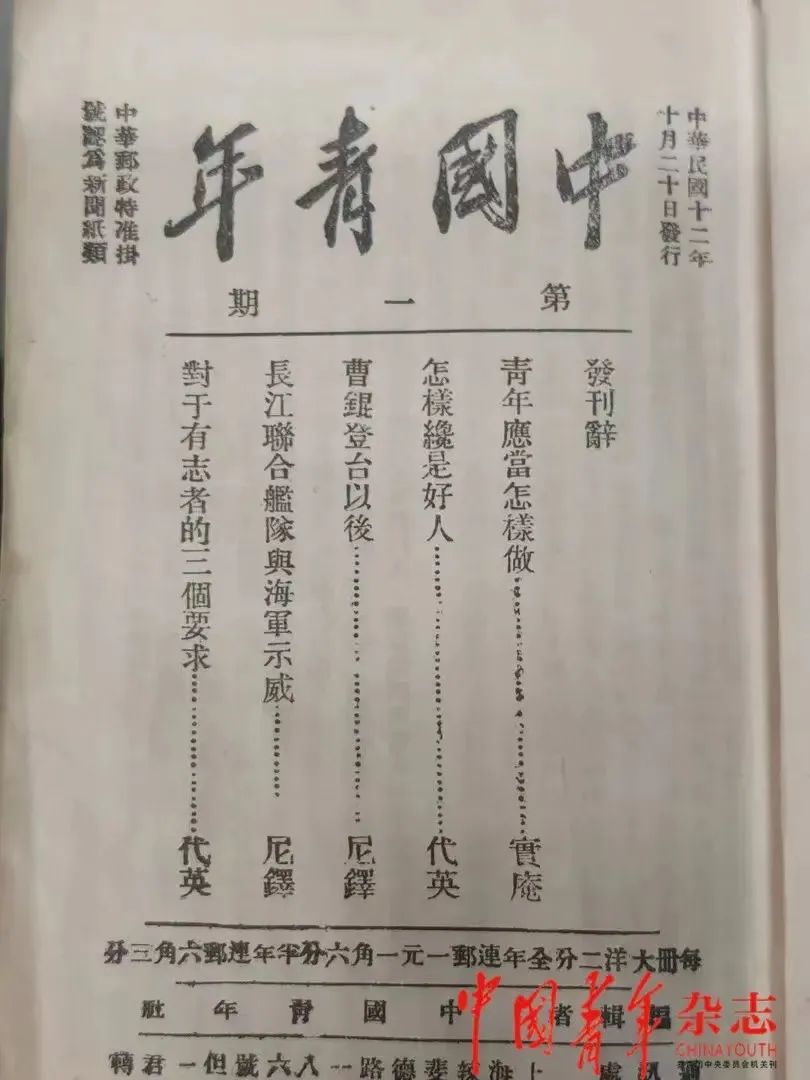 中華民國十二年
十月二十日發行
中國青年
中華郵政特准掛
號認爲新聞紙類
第一期
發刊辭
青年應當怎樣做……實庵
怎樣纔是好人……代英
曹錕登台以後……尼鐸
長江聯合艦隊與海軍示威……尼鐸
對于有志者的三個要求……代英
每冊大洋二分全年連郵一元一角六分半年連郵六角三分
編輯者 中國青年社
上海 斐德路一八六號但一君轉
中国青年杂志
CHINAYOUTH
共青团中央委员会机关刊